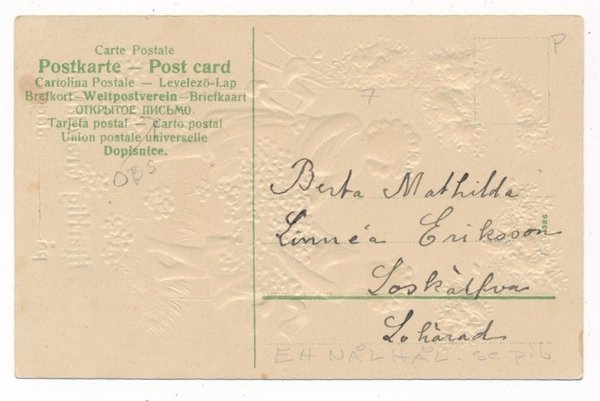 Carte Postale
Postkarte — Post card
Cartolina Postale — Levelező-Lap
Brefkort — Weltpostverein — Briefkaart
ОТКРЫТОЕ ПИСЬМО.
Tarjeta postal — Carto postal
Union postale universelle
Dopisnice.
OBS
P
7
Berta Mathilda
Linnéa Eriksson
Loskälfva
Lohärad
EH NÅLHÅL.